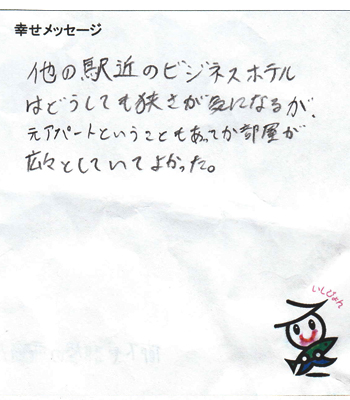 幸せメッセージ
他の駅近のビジネスホテル
はどうしても狭さが気になるが、
元アパートということもあってか部屋が
広々としていてよかった。
いしぴょん